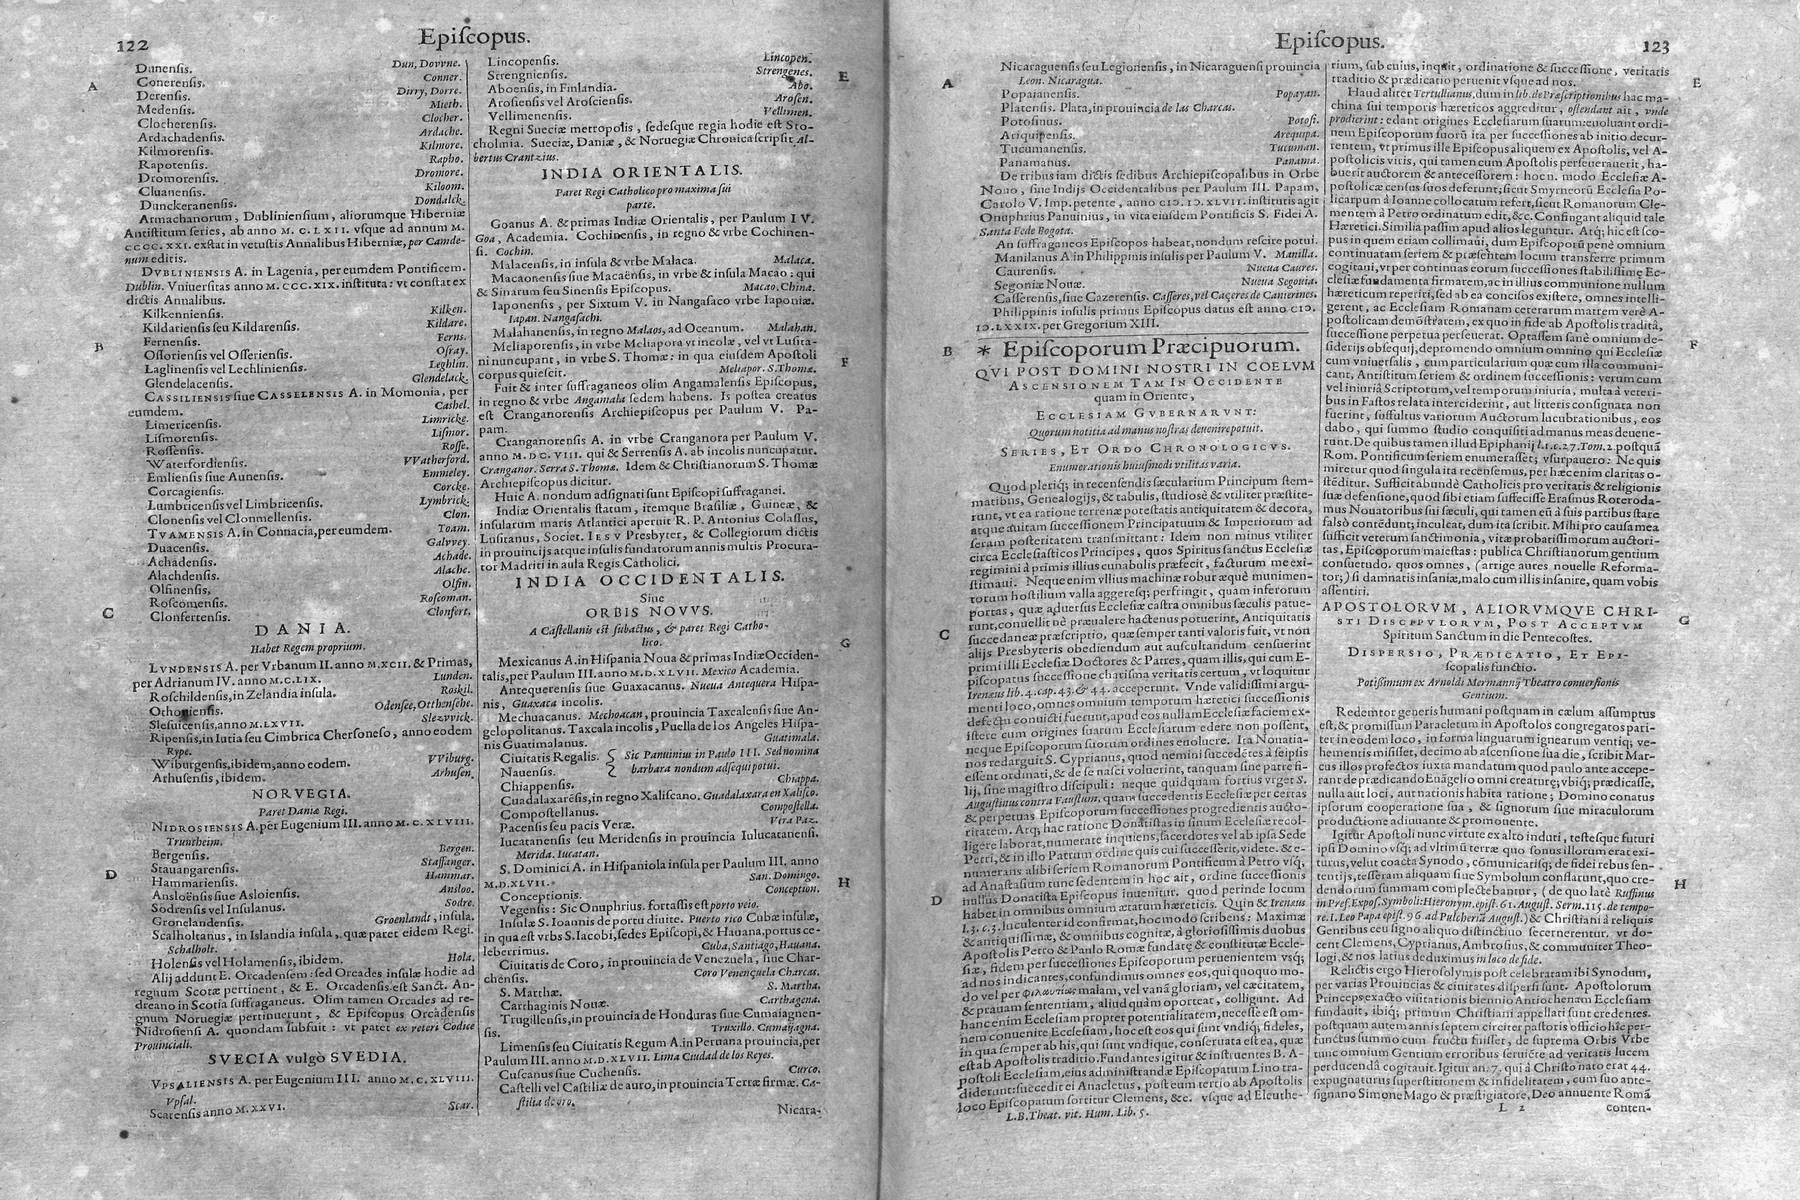 122
Episcopus.
Dunensis. Dun, Dovvne.
Conerensis. Conner.
Derensis. Dirry, Dorre.
Medensis. Mieth.
Clocherensis. Clocher.
Ardachadensis. Ardache.
Kilmorensis. Kilmore.
Rapotensis. Rapho.
Dromorensis. Dromore.
Cluanensis. Kiloom.
Dunckeranensis. Dondalck.
Armachanorum, Dubliniensium, aliorumque Hiberniæ
Antistitum series, ab anno M. C. LXII. vsque ad annum M.
CCCC. XXI. exstat in vetustis Annalibus Hiberniæ, per Camde-
num editis.
DVBLINIENSIS A. in Lagenia, per eumdem Pontificem.
Dublin. Vniuersitas anno M. CCC. XIX. instituta: vt constat ex
dictis Annalibus.
Kilkenniensis. Kilken.
Kildariensis seu Kildarensis. Kildare.
Fernensis. Ferns.
Ossoriensis vel Osseriensis. Osray.
Laglinensis vel Lechliniensis. Leghlin.
Glendelacensis. Glendelack.
CASSILIENSIS siue CASSELENSIS A. in Momonia, per
eumdem. Cashel.
Limericensis. Limricke.
Lismorensis. Lismor.
Rossensis. Rosse.
Waterfordiensis. VVatherford.
Emliensis siue Aunensis. Emmeley.
Corcagiensis. Corcke.
Lumbricensis vel Limbricensis. Lymbrick.
Clonensis vel Clonmellensis. Clon.
TVAMENSIS A. in Connacia, per eumdem. Toam.
Duacensis. Galvvey.
Achadensis. Achade.
Alachdensis. Alache.
Olfinensis. Olfin.
Roscomensis. Roscoman.
Clonfertensis. Clonfert.
DANIA.
Habet Regem proprium.
LVNDENSIS A. per Vrbanum II. anno M.XCII. & Primas,
per Adrianum IV. anno M.CLIX. Lunden.
Roschildensis, in Zelandia insula. Roskil.
Othoniensis. Odensee, Otthensche.
Slesuicensis, anno M.LXVII. Slezvvick.
Ripensis, in Iutia seu Cimbrica Chersoneso, anno eodem
Rype.
Wiburgensis, ibidem, anno eodem. VViburg.
Arhusensis, ibidem. Arhusen.
NORVEGIA.
Paret Daniæ Regi.
NIDROSIENSIS A. per Eugenium III. anno M. C. XLVIII.
Truntheim.
Bergensis. Bergen.
Stauangarensis. Staffanger.
Hammariensis. Hammar.
Ansloënsis siue Asloiensis. Ansloo.
Sodrensis vel Insulanus. Sodre.
Gronelandensis. Groenlandt, insula.
Scalholtanus, in Islandia insula, quæ paret eidem Regi.
Schalholt.
Holensis vel Holamensis, ibidem. Hola.
Alij addunt E. Orcadensem: sed Orcades insulæ hodie ad
regnum Scotæ pertinent, & E. Orcadensis est Sanct. An-
dreano in Scotia suffraganeus. Olim tamen Orcades ad re-
gnum Noruegiæ pertinuerunt, & Episcopus Orcadensis
Nidrosiensi A. quondam subsuit: vt patet ex veteri Codice
Prouinciali.
SVECIA vulgo SVEDIA.
VPSALIENSIS A. per Eugenium III. anno M. C. XLVIII.
Vpsal.
Scarensis anno M. XXVI. Scar.
A
B
C
D
Lincopensis. Lincopen.
Strengniensis. Strengenes.
Aboensis, in Finlandia. Abo.
Arosiensis vel Arosciensis. Arosen.
Vellimenensis. Vellimen.
Regni Sueciæ metropolis, sedesque regia hodie est Sto-
cholmia. Sueciæ, Daniæ, & Noruegiæ Chronica scripsit Al-
bertus Crantzius.
INDIA ORIENTALIS.
Paret Regi Catholico pro maxima sui
parte.
Goanus A. & primas Indiæ Orientalis, per Paulum IV.
Goa, Academia. Cochinensis, in regno & vrbe Cochinen-
si. Cochin.
Malacensis, in insula & vrbe Malaca. Malaca.
Macaonensis siue Macaënsis, in vrbe & insula Macao: qui
& Sinarum seu Sinensis Episcopus. Macao. China.
Iaponensis, per Sixtum V. in Nangasaco vrbe Iaponiæ.
Iapan. Nangasachi.
Malahanensis, in regno Malaos, ad Oceanum. Malahan.
Meliaporensis, in vrbe Meliapora vt incolæ, vel vt Lusita-
ni nuncupant, in vrbe S. Thomæ: in qua eiusdem Apostoli
corpus quiescit. Meliapor. S. Thoma.
Fuit & inter suffraganeos olim Angamalensis Episcopus,
in regno & vrbe Angamala sedem habens. Is postea creatus
est Cranganorensis Archiepiscopus per Paulum V. Pa-
pam.
Cranganorensis A. in vrbe Cranganora per Paulum V.
anno M.DC.VIII. qui & Serrensis A. ab incolis nuncupatur.
Cranganor. Serra S. Thomæ. Idem & Christianorum S. Thomæ
Archiepiscopus dicitur.
Huic A. nondum adsignati sunt Episcopi suffraganei.
Indiæ Orientalis statum, itemque Brasiliæ, Guineæ, &
insularum maris Atlantici aperuit R. P. Antonius Colassus,
Lusitanus, Societ. IESV Presbyter, & Collegiorum dictis
in prouincijs atque insulis fundatorum annis multis Procura-
tor Madriti in aula Regis Catholici.
INDIA OCCIDENTALIS.
Siue
ORBIS NOVVS.
A Castellanis est subactus, & paret Regi Catho-
lico.
Mexicanus A. in Hispania Noua & primas Indiæ Occiden-
talis, per Paulum III. anno M.D.XLVII. Mexico Academia.
Antequerensis siue Guaxacanus. Nueua Antequera Hispa-
nis, Guaxaca incolis.
Mechuacanus. Mechoacan, prouincia Taxcalensis siue An-
gelopolitanus. Taxcala incolis, Puella de los Angeles Hispa-
nis Guatimalanus. Guatimala.
Ciuitatis Regalis. Sic Panuinius in Paulo III. Sed nomina
Nauensis. barbara nondum adsequi potui.
Chiappensis. Chiappa.
Cuadalaxarēsis, in regno Xaliscano. Guadalaxara en Xalisco.
Compostellanus. Compostella.
Pacensis seu pacis Veræ. Vera Paz.
Iucatanensis seu Meridensis in prouincia Iulucatanensi.
Merida. Iucatan.
S. Dominici A. in Hispaniola insula per Paulum III. anno
M.D.XLVII. San. Domingo.
Conceptionis. Conception.
Vegensis: Sic Onuphrius. fortassis est porto veio.
Insulæ S. Ioannis de portu diuite. Puerto rico Cubæ insulæ,
in qua est vrbs S. Iacobi, sedes Episcopi, & Hauana, portus ce-
leberrimus. Cuba, Santiago, Hauana.
Ciuitatis de Coro, in prouincia de Venezuela, siue Char-
chensis. Coro Venençuela Charcas.
S. Marthæ. S. Martha.
Carthaginis Nouæ. Carthagena.
Trugillensis, in prouincia de Honduras siue Cumaiagnen-
sis. Truxillo. Cumaijagna.
Limensis seu Ciuitatis Regum A. in Peruana prouincia, per
Paulum III. anno M.D.XLVII. Lima Ciudad de los Reyes.
Cuscanus siue Cuchensis. Curco.
Castelli vel Castiliæ de auro, in prouincia Terræ firmæ. Ca-
stilia de oro.
Nicara-
E
F
G
H
Episcopus.
123
Nicaraguensis seu Legionensis, in Nicaraguensi prouincia
Leon. Nicaragua.
Popaianensis. Popayan.
Platensis. Plata, in prouincia de las Charcas.
Potosinus. Potosi.
Ariquipensis. Arequipa.
Tucumanensis. Tucuman.
Panamanus. Panama.
De tribus iam dictis sedibus Archiepiscopalibus in Orbe
Nouo, siue Indijs Occidentalibus per Paulum III. Papam,
Carolo V. Imp. petente, anno CIƆ. IƆ. XLVII. institutis agit
Onuphrius Panuinius, in vita eiusdem Pontificis S. Fidei A.
Santa Fede Bogota.
An suffraganeos Episcopos habeat, nondum rescire potui.
Manilanus A in Philippinis insulis per Paulum V. Manilla.
Caurensis. Nueua Caures.
Segoniæ Nouæ. Nueua Segouia.
Casserensis, siue Cazerensis. Casseres, vel Caçeres de Camerines.
Philippinis insulis primus Episcopus datus est anno CIƆ.
IƆ.LXXIX. per Gregorium XIII.
* Episcoporum Præcipuorum.
QVI POST DOMINI NOSTRI IN COELVM
ASCENSIONEM TAM IN OCCIDENTE
quam in Oriente,
ECCLESIAM GVBERNARVNT:
Quorum notitia ad manus nostras deuenire potuit.
SERIES, ET ORDO CHRONOLOGICVS.
Enumerationis huiusmodi vtilitas varia.
Quod pleriq; in recensendis sæcularium Principum stem-
matibus, Genealogijs, & tabulis, studiosè & vtiliter præstite-
runt, vt ea ratione terrenæ potestatis antiquitatem & decora,
atque auitam successionem Principatuum & Imperiorum ad
seram posteritatem transmittant: Idem non minus vtiliter
circa Ecclesiasticos Principes, quos Spiritus sanctus Ecclesiæ
regimini à primis illius cunabulis præfecit, facturum me exi-
stimaui. Neque enim vllius machinæ robur æquè munimen-
torum hostilium valla aggeresq; perfringit, quam inferorum
portas, quæ aduersus Ecclesiæ castra omnibus sæculis patue-
runt, conuellit nè præualere hactenus potuerint, Antiquitatis
succedaneæ præscriptio, quæ semper tanti valoris fuit, vt non
alijs Presbyteris obediendum aut auscultandum censuerint
primi illi Ecclesiæ Doctores & Patres, quam illis, qui cum E-
piscopatus successione charisma veritatis certum, vt loquitur
Irenæus lib. 4. cap. 43. & 44. acceperunt. Vnde validissimi argu-
menti loco, omnes omnium temporum hæretici successionis
defectu conuicti fuerunt, apud eos nullam Ecclesiæ faciem ex-
istere cum origines suarum Ecclesiarum edere non possent,
neque Episcoporum suorum ordines euoluere. Ita Nouatia-
nos redarguit S. Cyprianus, quod nemini succedētes à seipsis
essent ordinati, & de se nasci voluerint, tanquam sine patre fi-
lij, sine magistro discipuli: neque quidquam fortius vrget S.
Augustinus contra Faustum, quam succedentis Ecclesiæ per certas
& perpetuas Episcoporum successiones progredientis aucto-
ritatem. Atq; hac ratione Donatistas in sinum Ecclesiæ recol-
ligere laborat, numerate inquiens, sacerdotes vel ab ipsa Sede
Petri, & in illo Patrum ordine quis cui successerit, videte. & e-
numerans alibi seriem Romanorum Pontificum à Petro vsq;
ad Anastasium tunc sedentem in hoc ait, ordine successionis
nullus Donatista Episcopus inuenitur. quod perinde locum
habet in omnibus omnium ætatum hæreticis. Quin & Irenæus
l.3. c.3. luculenter id confirmat, hoc modo scribens: Maximæ
& antiquissimæ, & omnibus cognitæ, à gloriosissimis duobus
Apostolis Petro & Paulo Romæ fundatę & constitutæ Eccle-
siæ, fidem per successiones Episcoporum peruenientem vsq;
ad nos indicantes, confundimus omnes eos, qui quoquo mo-
do vel per φιλαυτίας malam, vel vanā gloriam, vel cæcitatem,
& prauam sententiam, aliud quàm oporteat, colligunt. Ad
hanc enim Ecclesiam propter potentialitatem, necesse est om-
nem conuenire Ecclesiam, hoc est eos qui sunt vndiq; fideles,
in qua semper ab his, qui sunt vndique, conseruata est ea, quæ
est ab Apostolis traditio. Fundantes igitur & instruentes B. A-
postoli Ecclesiam, eius administrandæ Episcopatum Lino tra-
diderunt: succedit ei Anacletus, post eum tertio ab Apostolis
loco Episcopatum sortitur Clemens, &c. vsque ad Eleuthe-
L.B. Theat. vit. Hum. Lib. 5.
A
B
C
D
rium, sub cuius, inquit, ordinatione & successione, veritatis
traditio & prædicatio peruenit vsque ad nos.
Haud aliter Tertullianus, dum in lib. de Præscriptionibus hac ma-
china sui temporis hæreticos aggreditur, ostendant ait, vnde
prodierint: edant origines Ecclesiarum suarum: euoluant ordi-
nem Episcoporum suorū ita per successiones ab initio decur-
rentem, vt primus ille Episcopus aliquem ex Apostolis, vel A-
postolicis viris, qui tamen cum Apostolis perseuerauerit, ha-
buerit auctorem & antecessorem: hoc n. modo Ecclesiæ A-
postolicæ census suos deferunt; sicut Smyrneorū Ecclesia Po-
licarpum à Ioanne collocatum refert, sicut Romanorum Cle-
mentem à Petro ordinatum edit, &c. Confingant aliquid tale
Hæretici. Similia passim apud alios leguntur. Atq; hic est sco-
pus in quem etiam collimaui, dum Episcoporū penè omnium
continuatam seriem & præsentem locum transferre primum
cogitani, vt per continuas eorum successiones stabilissimę Ec-
clesiæ fundamenta firmarem, ac in illius communione nullum
hæreticum reperiri, sed ab ea concisos existere, omnes intelli-
gerent, ac Ecclesiam Romanam ceterarum matrem verè A-
postolicam demōstrarem, ex quo in fide ab Apostolis traditâ,
successione perpetua perseuerat. Optassem sanè omnium de-
siderijs obsequij, depromendo omnium omnino qui Ecclesiæ
cum vniuersalis, cum particularium quæ cum illa communi-
cant, Antistitum seriem & ordinem successionis: verum cum
vel iniuriâ Scriptorum, vel temporum iniuria, multa à veteri-
bus in Fastos relata interciderint, aut litteris consignata non
fuerint, suffultus variorum Auctorum lucubrationibus, eos
dabo, qui summo studio conquisiti ad manus meas deuene-
runt. De quibus tamen illud Epiphanij l.1.c.27. Tom. 2. postquā
Rom. Pontificum seriem enumerasset; vsurpauero: Ne quis
miretur quod singula ita recensemus, per hæc enim claritas o-
stēditur. Sufficit abundè Catholicis pro veritatis & religionis
suæ defensione, quod sibi etiam suffecisse Erasmus Roteroda-
mus Nouatoribus sui sæculi, qui tamen eū à suis partibus stare
falsò contēdunt; inculcat, dum ita scribit. Mihi pro causa mea
sufficit veterum sanctimonia, vitæ probatissimorum auctori-
tas, Episcoporum maiestas: publica Christianorum gentium
consuetudo. quos omnes, (arrige aures nouelle Reforma-
tor;) si damnatis insaniæ, malo cum illis insanire, quam vobis
assentiri.
APOSTOLORVM, ALIORVMQVE CHRI-
STI DISCIPVLORVM, POST ACCEPTVM
Spiritum Sanctum in die Pentecostes.
DISPERSIO, PRÆDICATIO, ET EPI-
scopalis functio.
Potissimum ex Arnoldi Mermannij Theatro conuersionis
Gentium.
Redemtor generis humani postquam in cælum assumptus
est, & promissum Paracletum in Apostolos congregatos pari-
ter in eodem loco, in forma linguarum ignearum ventiq; ve-
hementis misisset, decimo ab ascensione sua die, scribit Mar-
cus illos profectos iuxta mandatum quod paulo ante accepe-
rant de prædicando Euāgelio omni creaturę, vbiq; prædicasse,
nulla aut loci, aut nationis habita ratione; Domino conatus
ipsorum cooperatione sua, & signorum siue miraculorum
productione adiuuante & promonente.
Igitur Apostoli nunc virtute ex alto induti, testesque futuri
ipsi Domino vsq; ad vltimū terræ quo sonus illorum erat exi-
turus, velut coacta Synodo, cōmunicatisq; de fidei rebus sen-
tentijs, tesseram aliquam siue Symbolum conflarunt, quo cre-
dendorum summam complectebantur, (de quo latè Ruffinus
in Pref. Expos. Symboli: Hieronym. epist. 61. August. Serm. 115. de tempo-
re. 1. Leo Papa epist. 96. ad Pulcheriā August.) & Christiani à reliquis
Gentibus ceu signo aliquo distinctiuo secernerentur. vt do-
cent Clemens, Cyprianus, Ambrosius, & communiter Theo-
logi, & nos latius deduximus in loco de fide.
Relictis ergo Hierosolymis post celebratam ibi Synodum,
per varias Prouincias & ciuitates dispersi sunt. Apostolorum
Princeps exacto visitationis biennio Antiochenam Ecclesiam
fundauit, ibiq; primum Christiani appellati sunt credentes.
postquam autem annis septem circiter pastoris officio hic per-
functus summo cum fructu fuisset, de suprema Orbis Vrbe
tunc omnium Gentium erroribus seruiēte ad veritatis lucem
perducendâ cogitauit. Igitur an. 7. qui à Christo nato erat 44.
expugnaturus superstitionem & infidelitatem, cum suo ante-
signano Simone Mago & præstigiatore, Deo annuente Romā
L 2
conten-
E
F
G
H